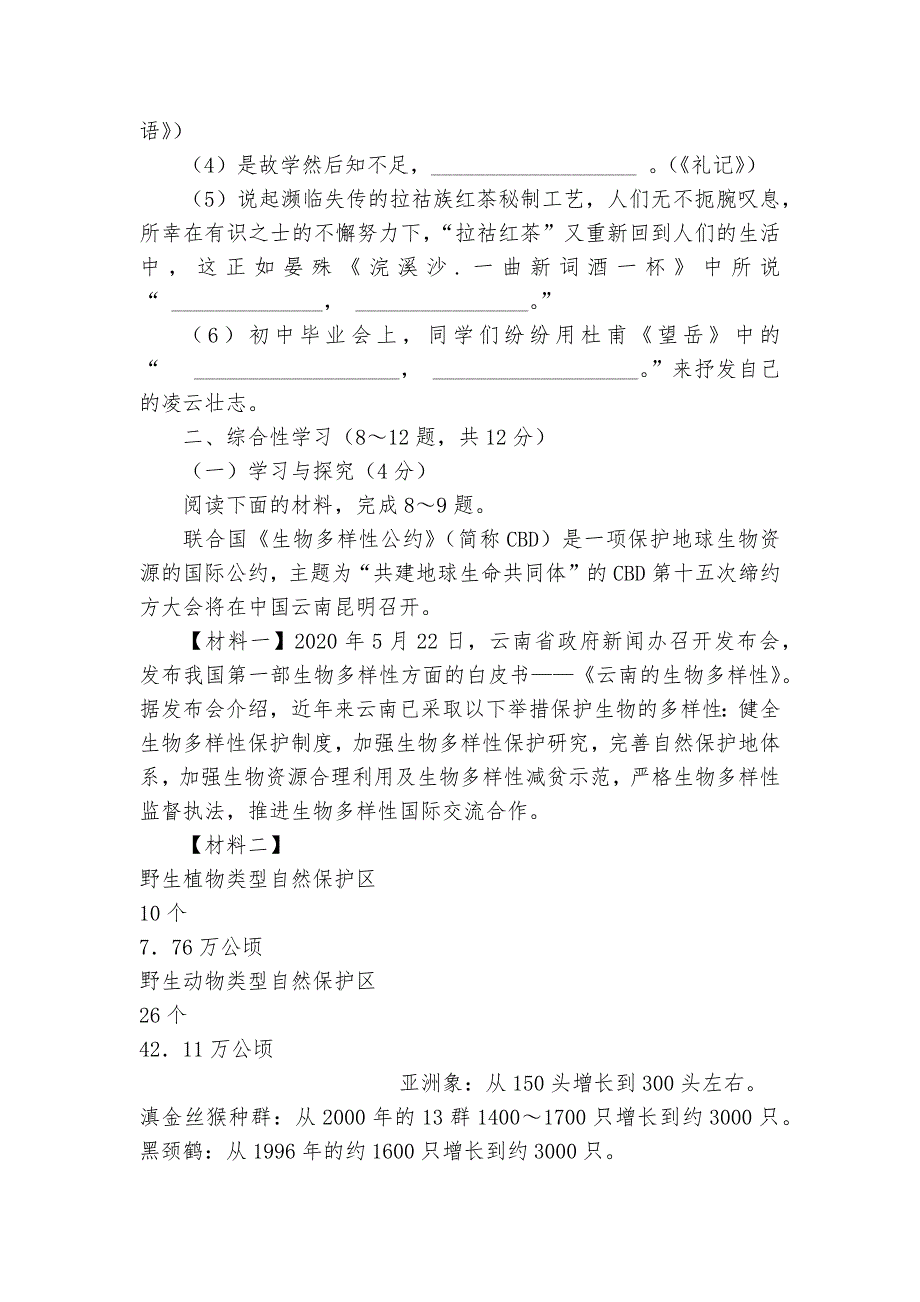 语》）
（4）是故学然后知不足，___________________ 。（《礼记》）
（5）说起濒临失传的拉祜族红茶秘制工艺，人们无不扼腕叹息，
所幸在有识之士的不懈努力下，“拉祜红茶”又重新回到人们的生活
中，这正如晏殊《浣溪沙.一曲新词酒一杯》中所说
“ ______________， ________________。”
（6）初中毕业会上，同学们纷纷用杜甫《望岳》中的
“ ___________________， ___________________。”来抒发自己
的凌云壮志。
二、综合性学习（8～12题，共12分）
（一）学习与探究（4分）
阅读下面的材料，完成8～9题。
联合国《生物多样性公约》（简称CBD）是一项保护地球生物资
源的国际公约，主题为“共建地球生命共同体”的CBD第十五次缔约
方大会将在中国云南昆明召开。
【材料一】2020年5月22日，云南省政府新闻办召开发布会，
发布我国第一部生物多样性方面的白皮书——《云南的生物多样性》。
据发布会介绍，近年来云南已采取以下举措保护生物的多样性：健全
生物多样性保护制度，加强生物多样性保护研究，完善自然保护地体
系，加强生物资源合理利用及生物多样性减贫示范，严格生物多样性
监督执法，推进生物多样性国际交流合作。
【材料二】
野生植物类型自然保护区
10个
7．76万公顷
野生动物类型自然保护区
26个
42．11万公顷
亚洲象：从150头增长到300头左右。
滇金丝猴种群：从2000年的13群1400～1700只增长到约3000只。
黑颈鹤：从1996年的约1600只增长到约3000只。